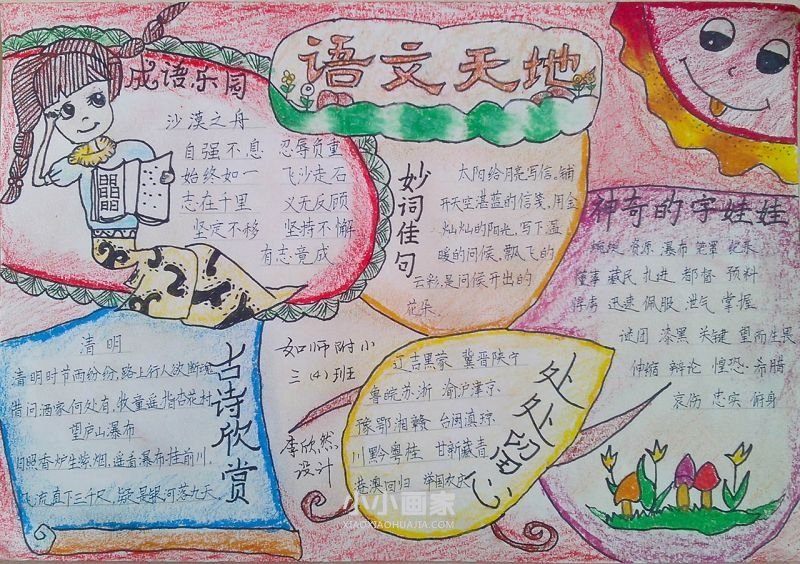 语文天地
成语乐园
沙漠之舟
自强不息 忍辱负重
始终如一 飞沙走石
志在千里 义无反顾
坚定不移 坚持不懈
有志竟成
妙词佳句
太阳给月亮写信。铺
开天空湛蓝的信笺,用金
灿灿的阳光,写下温
暖的问候,飘飞的
云彩,是问候开出的
花朵。
神奇的字娃娃
蜿蜒 资源 瀑布 笼罩 纪录
懂事 藏民 扎进 都督 预料
思考 迅速 佩服 泄气 掌握
谜团 漆黑 关键 望而生畏
伸缩 辩论 惶恐 希腊
哀伤 忠实 俯身
古诗欣赏
清明
清明时节雨纷纷,路上行人欲断魂
借问酒家何处有,牧童遥指杏花村
望庐山瀑布
日照香炉生紫烟,遥看瀑布挂前川,
飞流直下三千尺,疑是银河落九天。
如师附小
三(4)班
李欣然
设计
处处留心
辽吉黑蒙 冀晋陕宁
鲁皖苏浙 渝沪津京
豫鄂湘赣 台闽滇琼
川黔粤桂 甘新藏青
港澳回归 举国大庆
小小画家
XIAOXIAOHUAJIA.COM